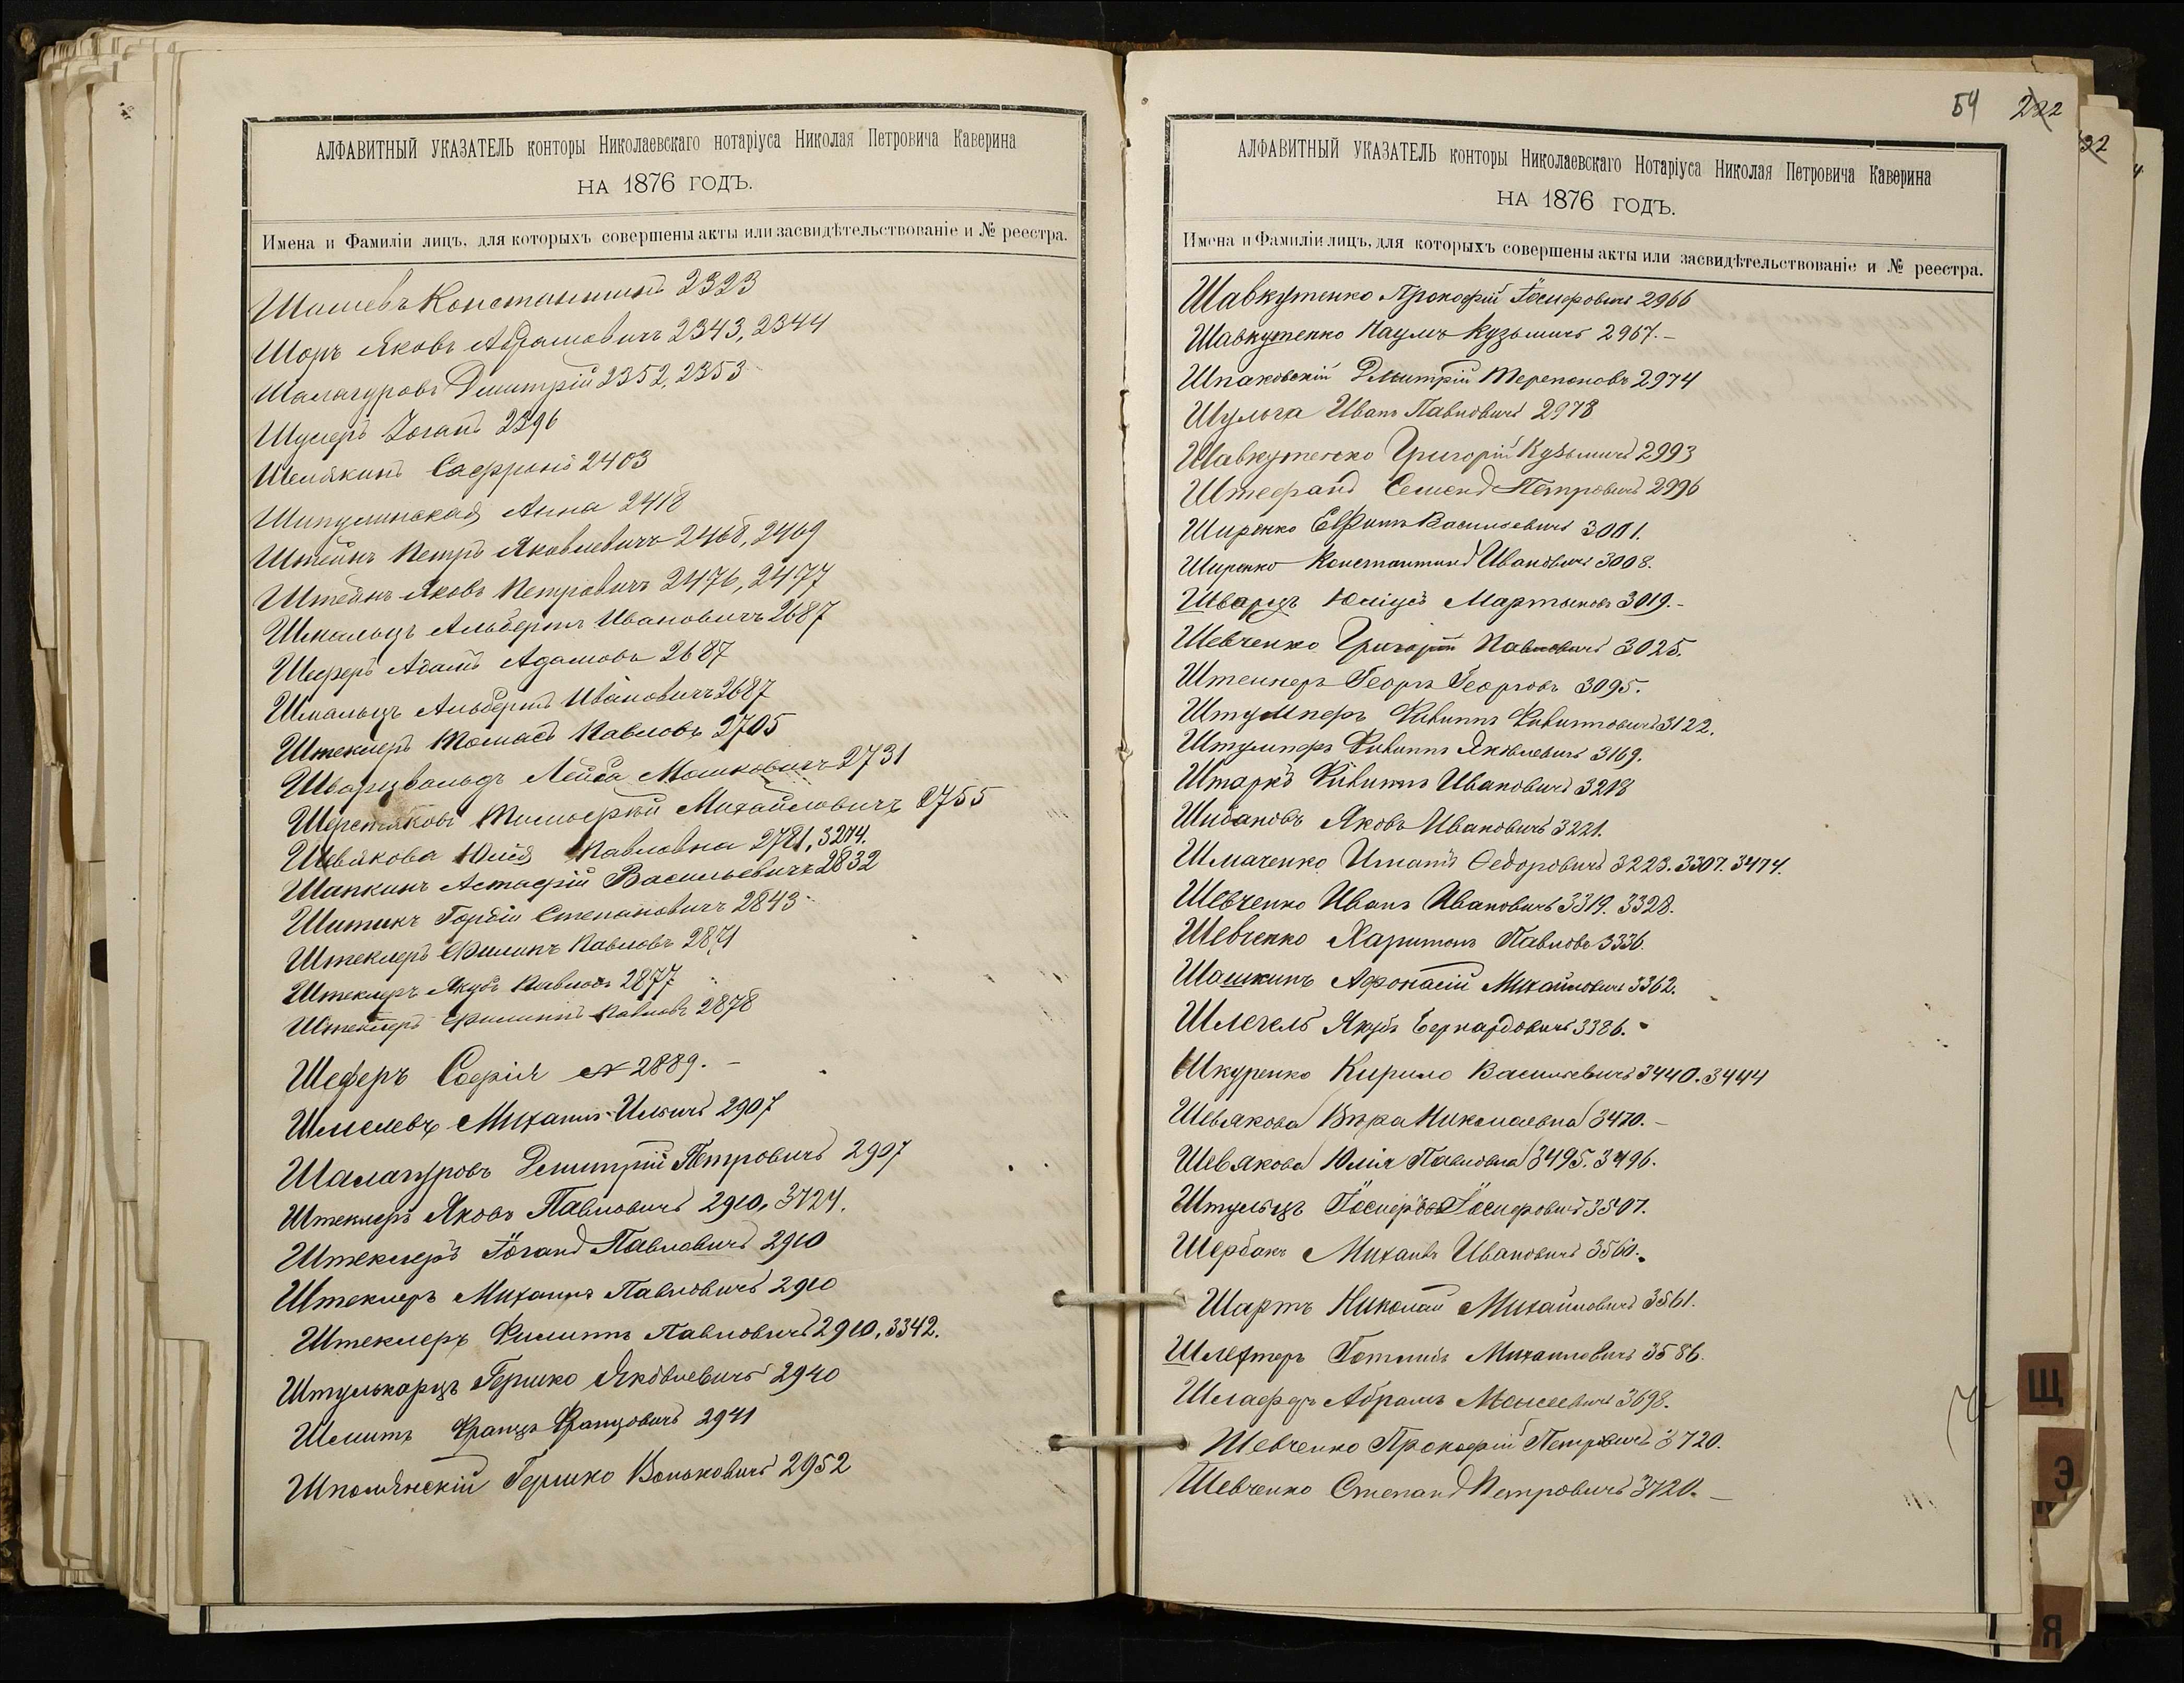 АЛФАВИТНЫЙ УКАЗАТЕЛЬ конторы Николаевскаго нотаріуса Николая Петровича Каверина
НА 1876 ГОДЪ.
Имена и Фамиліи лицъ, для которыхъ совершены акты или засвидѣтельствованіе и № реестра.
Константинъ 2323
Шоръ Яковъ Абрамовичъ 2343, 2344
Шалагуровъ Дмитрій 2352, 2353
Шуллеръ Іоганъ 2396
Шемякинъ Сафронъ 2403
Анна 2418
Штейнъ Петръ Яковлевичъ 2468, 2469
Штейнъ Яковъ Петровичъ 2476, 2477
Шмальцъ Альбертъ Ивановичъ 2687
Шеферъ Адамъ Адамовъ 2687
Шмальцъ Альбертъ Ивановичъ 2687
Штеклеръ Томасъ Павловъ 2705
Шварцвальдъ Лейба Мошковичъ 2731
Шерстяковъ Тимофей Михайловичъ 2755
Шевякова Юлія Павловна 2781, 3274.
Шапкинъ Астафій Васильевичъ 2832
Шитикъ Гордій Степановичъ 2843
Штеклеръ Филипъ Павловъ 2871
Штеклеръ Якубъ Павловъ 2877
Штеклеръ Филиппъ Павловъ 2878
Шеферъ Софія № 2889. –
Шмелевъ Михаилъ Ильичъ 2907
Шалагуровъ Дмитрій Петровичъ 2907
Штеклеръ Яковъ Павловичъ 2910, 3724.
Штеклеръ Іоганъ Павловичъ 2910
Штеклеръ Михаилъ Павловичъ 2910
Штеклеръ Филиппъ Павловичъ 2910, 3342.
Штулькарцъ Гершко Яковлевичъ 2940
Шмитъ Францъ Францовичъ 2941
Шполянскій Гершко Вольковичъ 2952
54 222
АЛФАВИТНЫЙ УКАЗАТЕЛЬ конторы Николаевскаго Нотаріуса Николая Петровича Каверина
НА 1876 ГОДЪ.
Имена и Фамиліи лицъ, для которыхъ совершены акты или засвидѣтельствованіе и № реестра.
Шавкутенко Прокофій Іосифовичъ 2966
Шавкутенко Наумъ Кузьмичъ 2967. –
Шпаковскій Дмитрій 2974
Шульга Иванъ Павловичъ 2978
Шавкутенко Григорій Кузьмичъ 2993
Штефанъ Семенъ Петровичъ 2996
Ширенко Васильевичъ 3001.
Ширенко Константинъ Ивановичъ 3008.
Шварцъ Юліусъ Мартыновъ 3019. –
Шевченко Григорій Павловичъ 3025.
Штейнеръ Георгъ Георговъ 3095.
Штумперъ Филиппъ Филипповичъ 3122.
Штумперъ Филиппъ Яковлевичъ 3169.
Штаркъ Филиппъ Ивановичъ 3218
Шибановъ Яковъ Ивановичъ 3221.
Шмаченко Игнатъ Ѳедоровичъ 3223. 3307. 3474.
Шевченко Иванъ Ивановичъ 3319. 3328.
Шевченко Харитонъ Павловъ 3336.
Шашкинъ Афонасій Михайловичъ 3362.
Шлегель Якубъ Бернардовичъ 3386.
Шкуренко Кирило Васильевичъ 3440. 3444
Шевякова Вѣра Николаевна 3470. –
Шевякова Юлія Павловна 3495. 3496.
Штульцъ Іосифъ Іосифовичъ 3507.
Шербакъ Михаилъ Ивановичъ 3560.
Шартъ Николай Михайловичъ 3561.
Шлехтеръ Готлибъ Михайловичъ 3586.
Абрамъ Моисеевичъ 3698.
Шевченко Прокофій Петровичъ 3720.
Шевченко Степанъ Петровичъ 3720. –
Щ
Э
Я